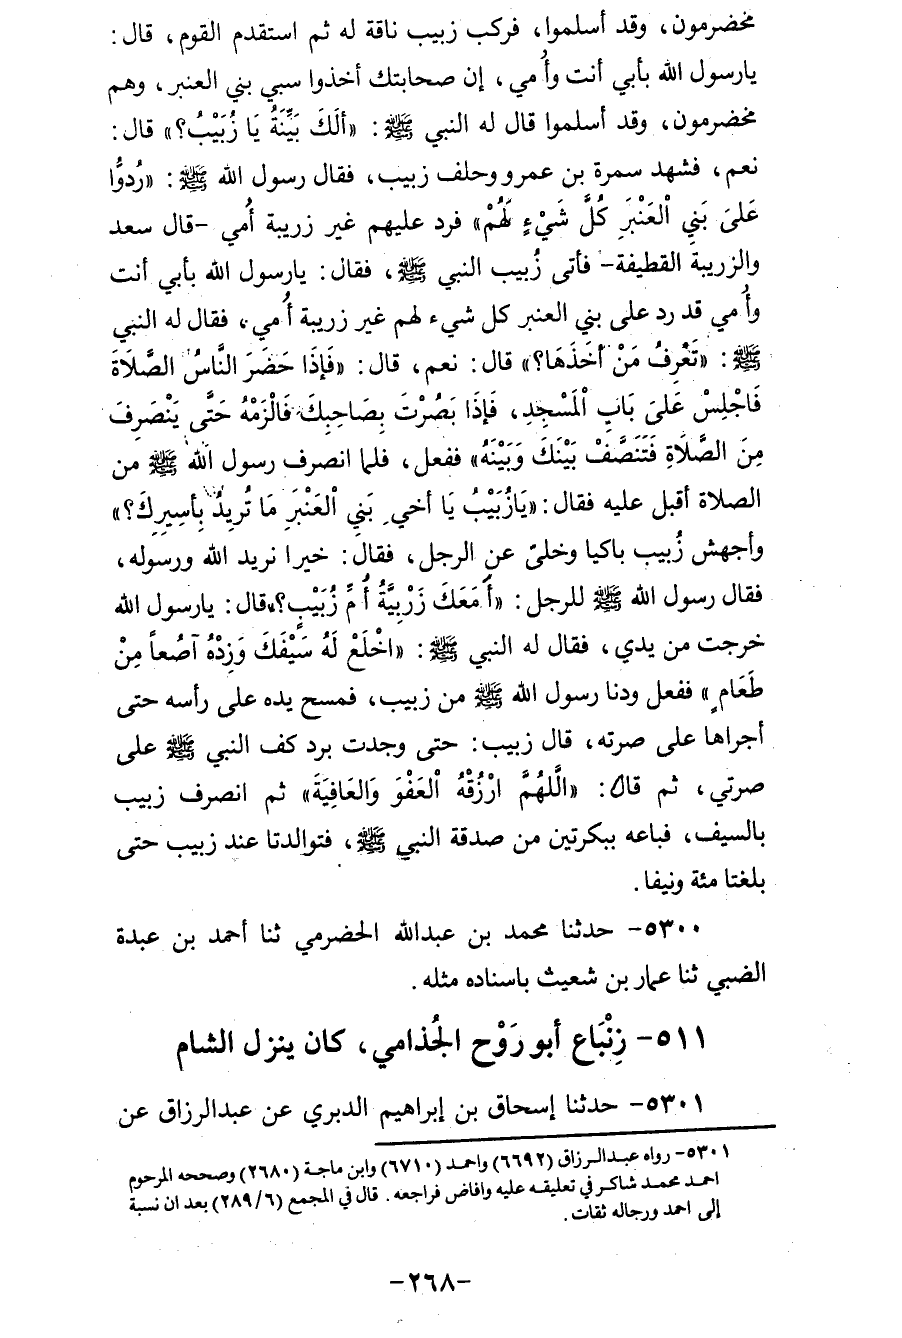 مخضرمون، وقد أسلموا، فركب زبيب ناقة له ثم استقدم القوم، قال:
يارسول الله بأبي أنت وأُمي، إن صحابتك أخذوا سبي بني العنبر، وهم
مخضرمون، وقد أسلموا قال له النبي ﷺ: «أَلَكَ بَيِّنَةُ يَا زُبَيْبُ؟» قال:
نعم، فشهد سمرة بن عمرو وحلف زبيب، فقال رسول الله ﷺ: «رُدوُّا
عَلىَ بَنِي اْلعَنْبَرِ كُلَّ شَيْءٍ لَهُمْ» فرد عليهم غير زريبة أُمي -قال سعد
والزريبة القطيفة- فأتى زُبيب النبي ﷺ، فقال: يارسول الله بأبي أنت
وأُمي قد رد على بني العنبر كل شيء لهم غير زريبة أُمي، فقال له النبي
ﷺ: «تَعْرِفُ مَنْ أَخَذَهَا؟» قال: نعم، قال: «فَإِذَا حَضَرَ النَّاسُ الصَّلاَةَ
فَاجْلِسْ عَلىَ بَابِ اْلمَسْجِدِ، فَإِذَا بَصُرْتَ بِصَاحِبِكَ فَالْزَمْهُ حَتَّى يَنْصَرِفَ
مِنَ الصَّلاَةِ فَتَنَصَّفْ بَيْنَكَ وَبَيْنَهُ» ففعل، فلما انصرف رسول الله ﷺ من
الصلاة أقبل عليه فقال: «يَازُبَيْبُ يَا أخي بَنِي اْلعَنْبَرِ مَا تُرِيدُ بِأسِيرِكَ؟»
وأجهش زُبيب باكيا وخلىّ عن الرجل، فقال: خيرا نريد الله ورسوله،
فقال رسول الله ﷺ للرجل: «أَمَعَكَ زَرْبِيَّةُ أُمِّ زُبَيْبٍ؟» قال: يارسول الله
خرجت من يدي، فقال له النبي ﷺ: «اخْلَعْ لَهُ سَيْفَكَ وَزِدْهُ آصُعاً مِنْ
طَعَامٍ» ففعل ودنا رسول الله ﷺ من زبيب، فمسح يده على رأسه حتى
أجراها على صرته، قال زبيب: حتى وجدت برد كف النبي ﷺ على
صرتي، ثم قال: «الَّلهُمَّ ارْزُقْهُ اْلعَفْوَ وَالعَافِيَةَ» ثم انصرف زبيب
بالسيف، فباعه ببكرتين من صدقة النبي ﷺ، فتوالدتا عند زبيب حتى
بلغتا مئة ونيفا.
٥٣٠٠- حدثنا محمد بن عبدالله الحضرمي ثنا أحمد بن عبدة
الضبي ثنا عمار بن شعيث باسناده مثله.
٥١١- زِنْبَاع أبو رَوْح الجُذامي، كان ينزل الشام
٥٣٠١- حدثنا إسحاق بن إبراهيم الدبري عن عبدالرزاق عن
٥٣٠١- رواه عبدالرزاق (٦٦٩٢) واحمد (٦٧١٠) وابن ماجة (٢٦٨٠) وصححه المرحوم
احمد محمد شاكر في تعليقه عليه وافاض فراجعه. قال في المجمع (٢٨٩/٦) بعد ان نسبة
إلى احمد ورجاله ثقات.
-٢٦٨-